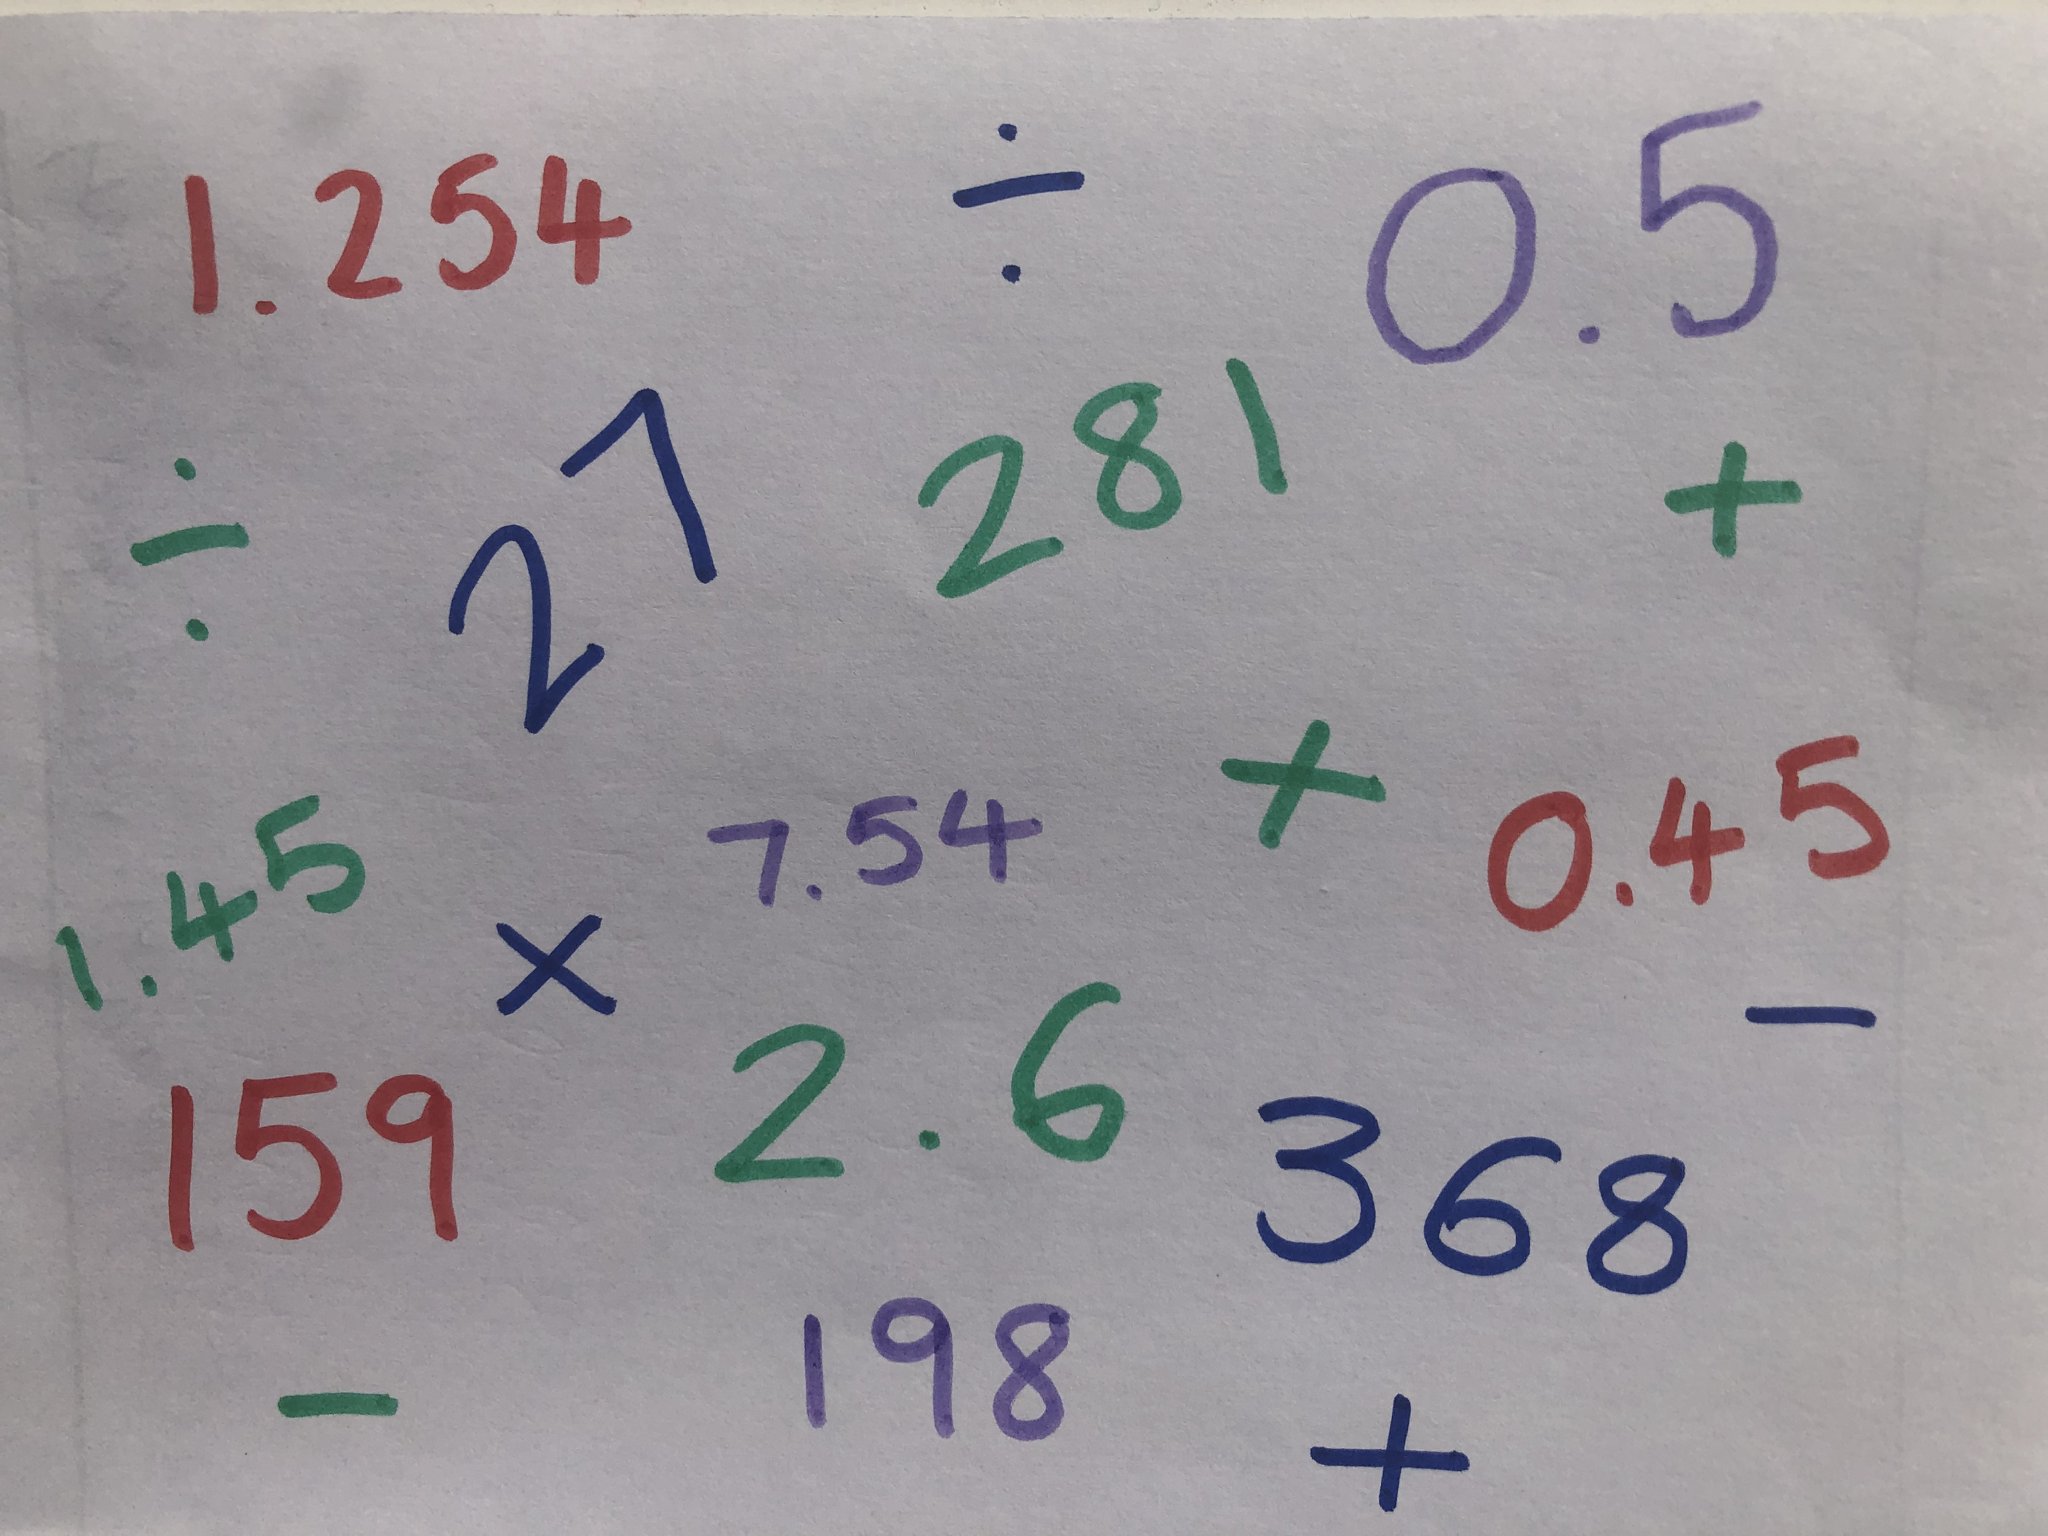 1.254 ÷ 0.5
÷ 27 281 +
1.45 × 7.54 + 0.45
159 2.6 368 −
− 198 +